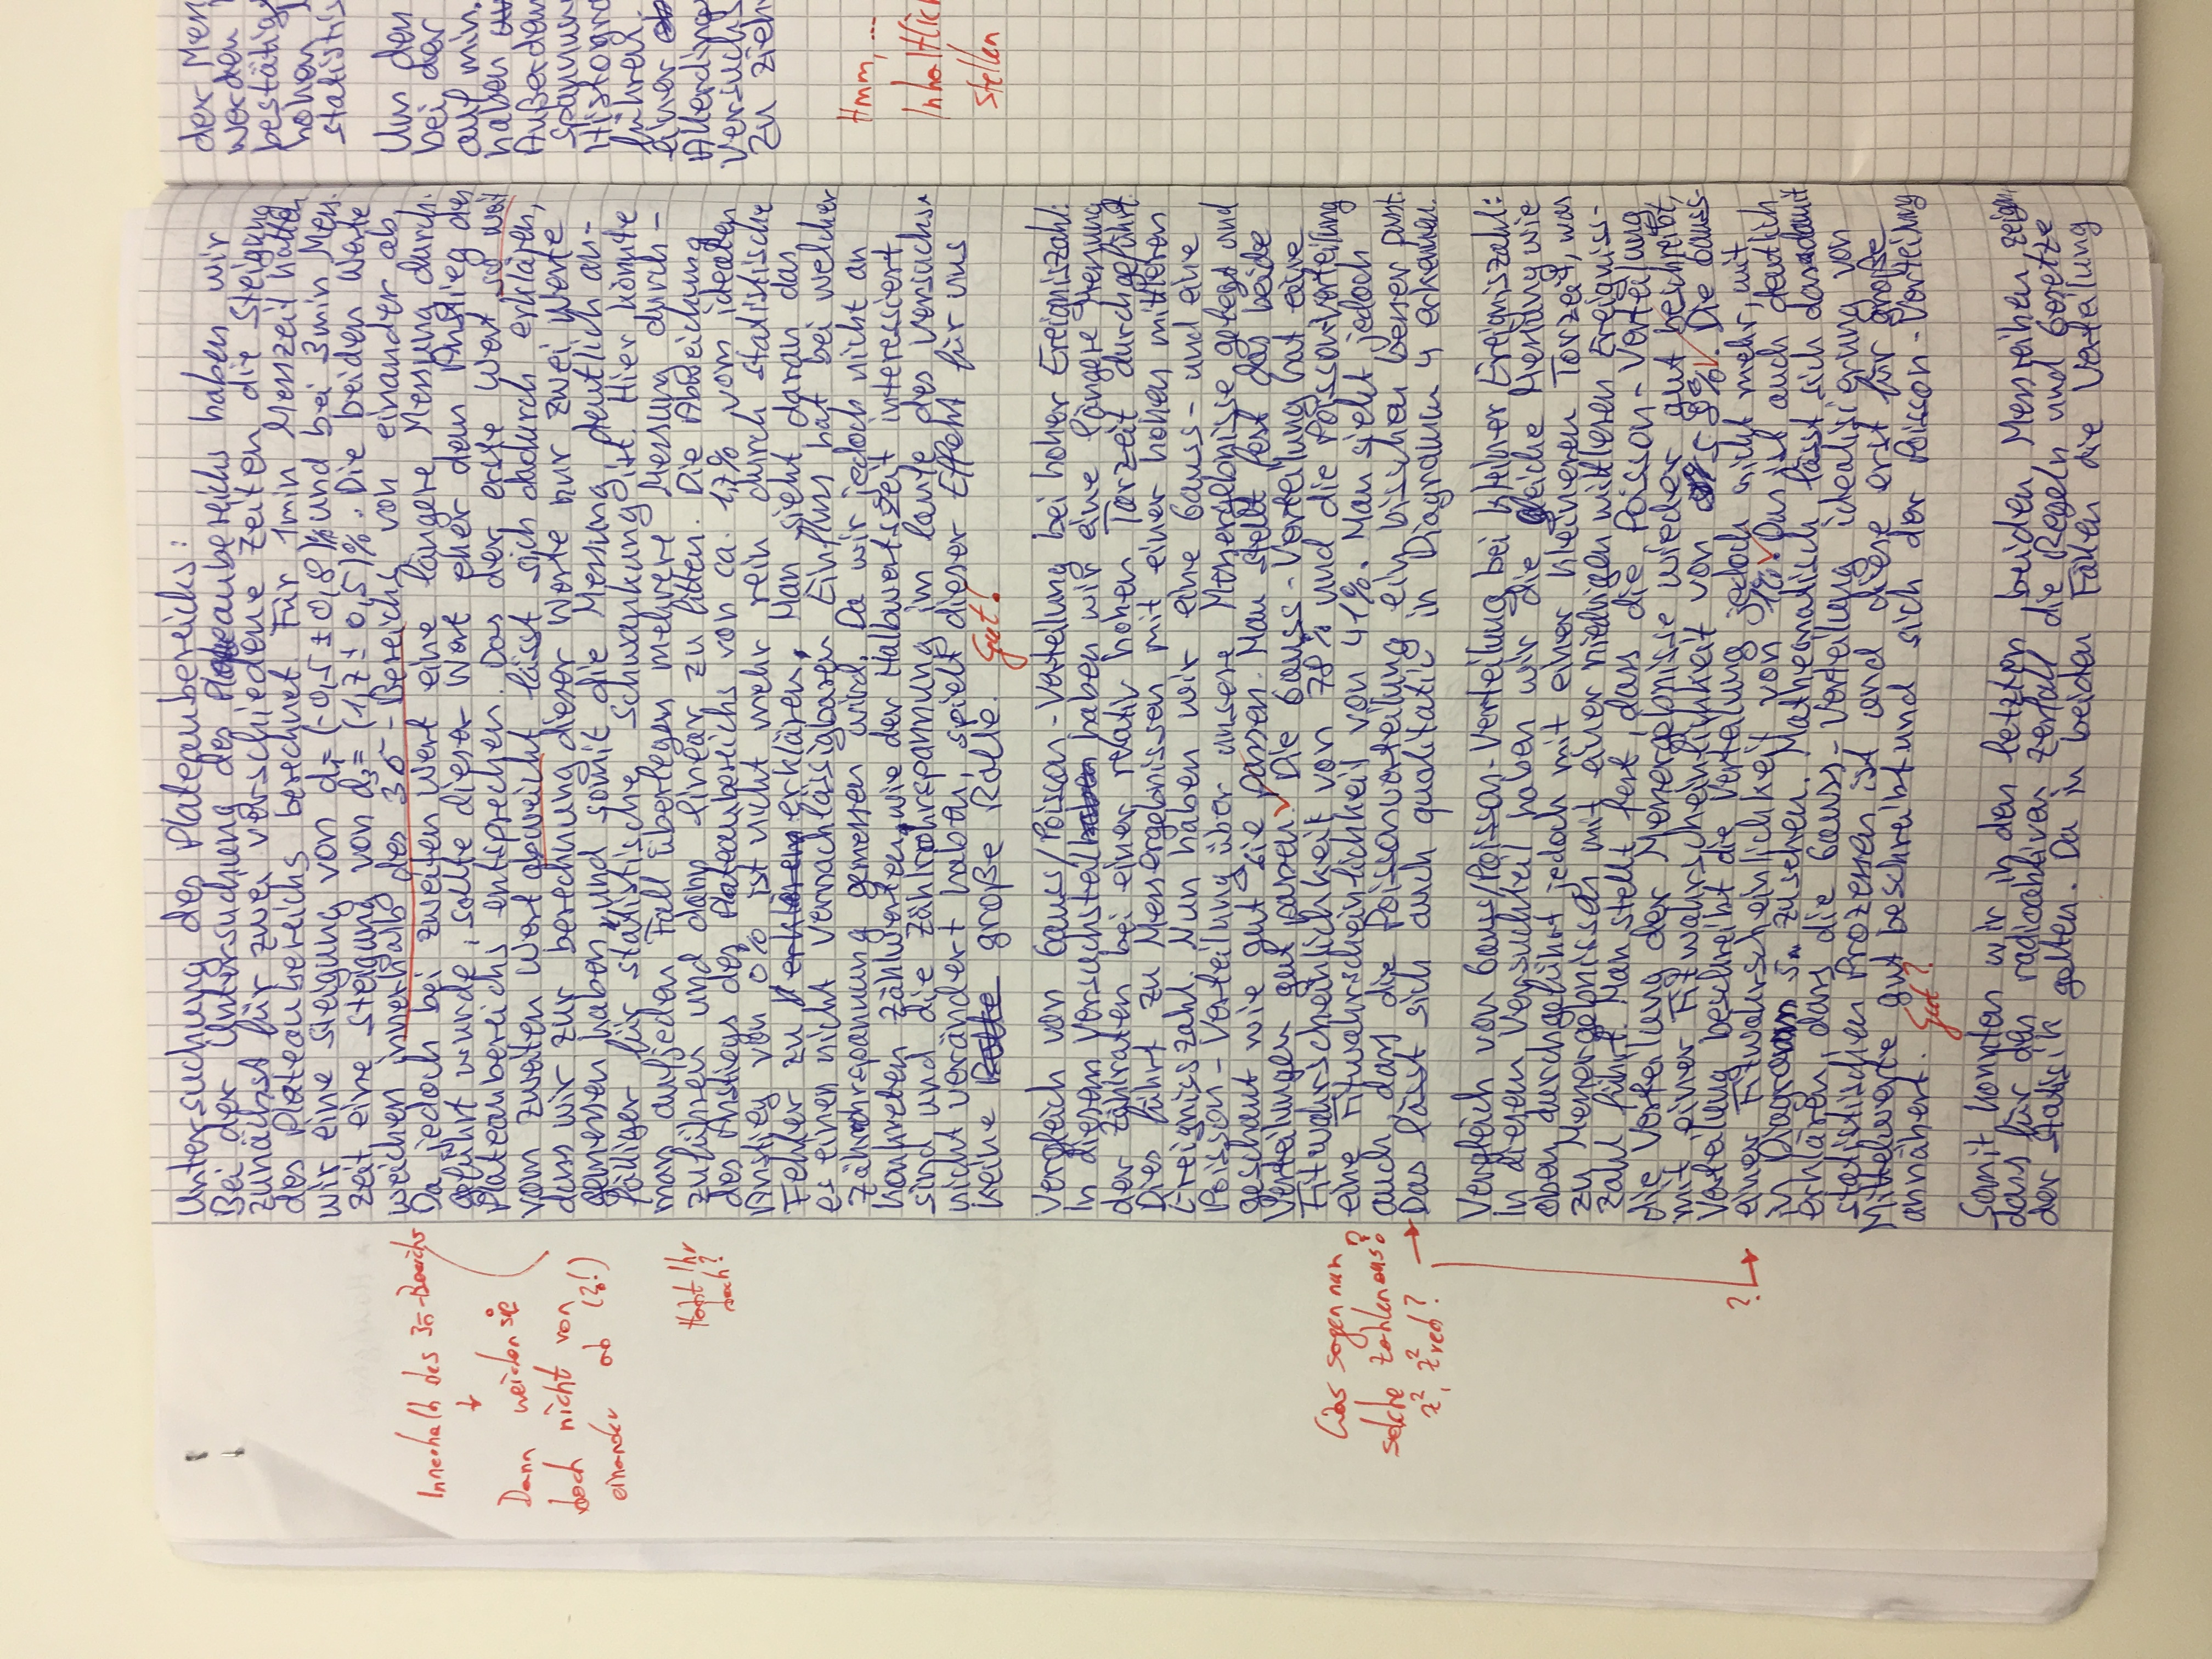 Untersuchung des Plateaubereichs:
Bei der Untersuchung des Plateaubereichs haben wir
zunächst für zwei verschiedene Zeiten die Steigung
des Plateaubereichs berechnet. Für 1min Messzeit hatten
wir eine Steigung von d₁= (-0,5 ± 0,8)% und bei 3min Mess-
zeit eine Steigung von d₃= (1,7 ± 0,5)%. Die beiden Werte
weichen innerhalb des 3σ-Bereichs von einander ab.
Da jedoch bei zweiten Wert eine längere Messung durch-
geführt wurde, sollte dieser Wert eher dem Anstieg des
Plateaubereichs entsprechen. Das der erste Wert so weit
vom zweiten Wert abweicht lässt sich dadurch erklären,
dass wir zur berechnung dieser Werte nur zwei Werte
gemessen haben, und somit die Messung deutlich an-
fälliger für statistische Schwankung ist. Hier könnte
man aufjeden Fall überlegen mehrere Messung durch-
zuführen und dann linear zu fitten. Die Abweichung
des Anstiegs des Plateaubereichs von ca. 1,7% vom idealen
Anstieg von 0% ist nicht mehr rein durch statistische
Fehler zu erklären erklären. Man sieht daran das
es einen nicht vernachlässigbaren Einfluss hat bei welcher
Zählrohrspannung gemessen wird. Da wir jedoch nicht an
konkreten Zählwerten, wie der Halbwertszeit interessiert
sind und die Zählrohrspannung im laufe des Versuchs
nicht verändert haben, spielt dieser Effekt für uns
keine Rolle große Rolle. Gut!
Vergleich von Gauss/Poisson-Verteilung bei hoher Ereigniszahl:
In diesem Versuchsteil haben haben wir eine längere Messung
der Zählraten bei einer relativ hohen Torzeit durchgeführt.
Dies führt zu Messergebnissen mit einer hohen mittleren
Ereignisszahl. Nun haben wir eine Gauss- und eine
Poisson-Verteilung über unsere Messergebnisse gelegt und
geschaut wie gut sie passen. Man stellt fest das beide
Verteilungen gut passen. ✓ Die Gauss-Verteilung hat eine
Fitwahrscheinlichkeit von 78% und die Poissonverteilung
eine Fitwahrscheinlichkeit von 41%. Man sieht jedoch
auch, dass die Poissonverteilung ein bisschen besser passt.
Das lässt sich auch qualitativ in Diagramm 4 erkennen.
Vergleich von Gauss/Poisson-Verteilung bei kleiner Ereigniszahl:
In diesem Versuchteil haben wir die gleiche Messung wie
oben durchgeführt jedoch mit einer kleineren Torzeit, was
zu Messergebnissen mit einer niedrigen mittleren Ereigniss-
zahl führt. Man stellt fest, dass die Poisson-Verteilung
die Verteilung der Messergebnisse wieder gut beschreibt,
mit einer Fitwahrscheinlichkeit von 58% ✓. Die Gauss-
Verteilung beschreibt die Verteilung jedoch nicht mehr, mit
einer Fitwahrscheinlichkeit von 1% ✓. Das ist auch deutlich
in Diagramm 5 zu sehen. Mathematisch lässt sich das damit
erklären, dass die Gauss-Verteilung idealisierung von
statistischen Prozessen ist und diese erst für große
Mittelwerte gut beschreibt und sich der Poisson-Verteilung
annähert. Gut?
Somit konnten wir in den letzten beiden Messreihen zeigen,
dass für den radioaktiven Zerfall die Regeln und Gesetze
der Statisik gelten. Da in beiden Fällen die Verteilung
Innerhalb des 3σ-Bereichs
↓
Dann weichen sie
doch nicht von
einander ab (?!)
Habt Ihr
doch?
Was sagen nun
solche Zahlen aus?
χ², χ²red?
?
der Mes
werden
bestätig
hohen
statistis
Um den
bei der
auf min.
haben
Außerdem
Spannun
Histogra
führen.
einer
Allerdings
Versuchs
zu zieh
Hmm, ...
Inhaltlich
stellen